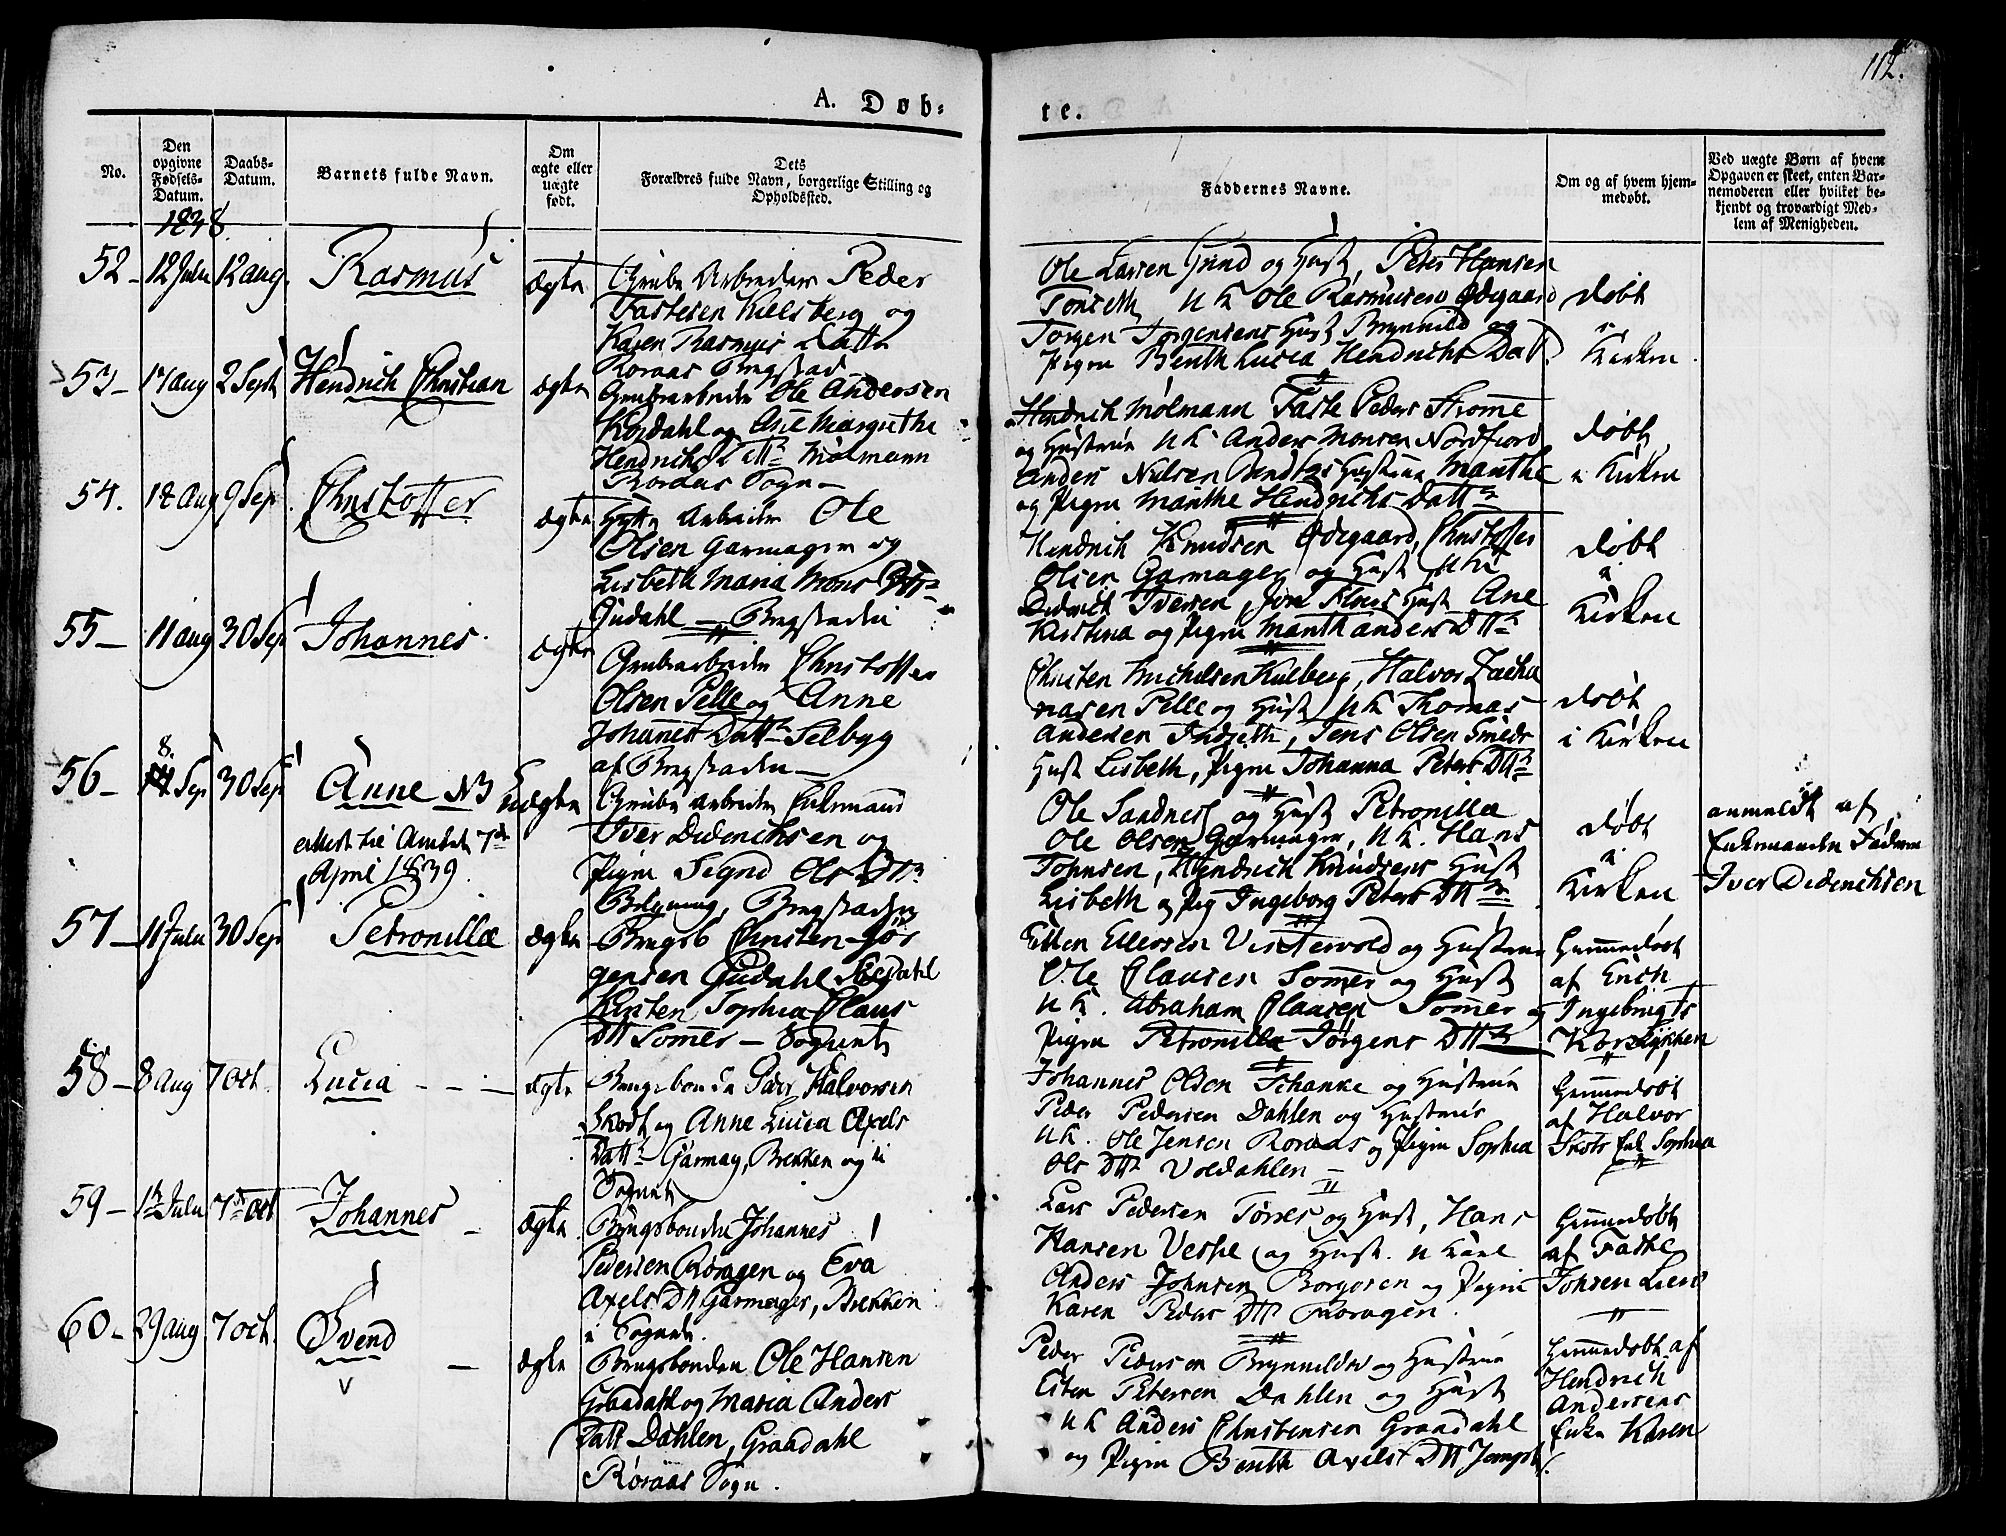 112.
A. Døb-
te.
No.
Den opgivne Fødsels-Datum.
Daabs-Datum.
Barnets fulde Navn.
Om ægte eller uægte født.
Dets Forældres fulde Navn, borgerlige Stilling og Opholdssted.
Faddernes Navne.
Om og af hvem hjem-medøbt.
Ved uægte Børn af hvem Opgaven er skeet, enten Bar-nemoderen eller hvilket be-kjendt og troværdigt Med-lem af Menigheden.
1838.
52 - 12 Juli 12 aug. Rasmus ægte
Grube Arbeider Peder
Fastesen og
Karen Rasmus Datter
Roraas Bergstad
Ole Larsen Grind og Hust, Peter Hansen
Tønseth, UK Ole Rasmusen Ødegaard
Torgen Torgensens Hust Brynnild og
Pigen Benth Lucia Hendrichs Datt.
døbt
i
Kirken
53 - 17 aug 2 Sept Hendrich Christian ægte
Grubearbeider Ole Andersen
Kordahl og Ane Margrethe
Hendrichs Dtr Mølmann
Roraas Sogn -
Hendrich Mølmann Faste Peders Strøme
og Hustrue UK Anders Monsen Nordfiord
Anders Nielsen Hustrue Manthe
og Pigen Manthe Hendrichs Datter
døbt
i Kirken
54. 12 Aug 9 Sep Christoffer ægte
Hytte Arbeider Ole
Olsen Garmager og
Lisbeth Maria Mons Dtr
Gudahl - Bergstaden
Hendrich Knudsen Ødegaard, Christoffer
Olsen Garmager og Hust UK
Diderich Iversen, Hust Ane
Kirstina og Pigen Manth anders Dtr
døbt
i
Kirken
55 - 11 aug 30 Sep Johannes ægte
Grubearbeider Christoffer
Olsen Pelle og Anne
Johannes Datter Selbyg
af Bergstaden -
Christen Michelsen Kulberg, Halvor Zacha
riasen Pelle og Hust, UK Thomas
Andersen, Jens Olsen Smeds
Hust Lisbeth, Pigen Johanna Peters Dtr
døbt
i Kirken
56 - 8. Sep 30 Sep Anne NB Uægte
April 1839.
Grube Arbeider Enkemand
Iver Diderichsen og
Pigen Segnd Ols Dtr
Bergstaden
Ole Sandnes og Hust Petronilla
Ole Olsen Garmager, UK. Hans
Johnsen, Hendrich Knudsens Hust
Lisbeth og Pig Ingeborg Peters Dtr
døbt
i
Kirken
anmeldt af
Enkemanden Faderen
Iver Diderichsen
57 - 11 Juli 30 Sep Petronilla ægte
Bergsb Christen Jør
gensen Gudahl
Kirsten Sophia Claus
Dtr Somer - Sognet
Ellen Ellersen Vintervold og Hustrue
Ole Clausen Somer og Hust
UK. Abraham Clausen Somer og
Pigen Petronilla Jørgens Dtr
Hjemmedøbt
af Erich
Ingebrigts
58 - 8 Aug 7 Oct. Lucia - - - ægte
Bergsbonde Peder Halvorsen
Skott og Anne Lucia Axels
Datter Garmag, Brekken og i
Sognet
Johannes Olsen Schanke og Hustrue
Peder Pedersen Dahlen og Hustrue
UK. Ole Jensen Roraas og Pigen Sophia
Ols Dtr Voldahlen -
Hjemmedøbt
af Halvor
Skots Enk Sophia
59 - Juli 7de Oct Johannes - ægte
Bergsbonden Johannes
Pedersen Roragen og Eva
Axels Dtr Garmager, Brekken
i Sognet.
Lars Pedersen Torres og Hust, Hans
Hansen og Hust. U Karl
Anders Johnsen Borgosen og Pigen
Karen Peders Dtr Roragen.
Hjemmedøbt
af Faste
Johsen Lien
60 - 29 aug 7 Oct. Svend - ægte
Bergsbonden Ole Hansen
Graadahl og Maria Anders
Datt Dahlen, Graadahl
Roraas Sogn.
Peder Pedersen og Hustrue
Esten Petersen Dahlen og Hust
UK Anders Christensen Graadahl
og Pigen Benth Axels Dtr
Hjemmedøbt af
Hendrich
Andersens
Enke Karen